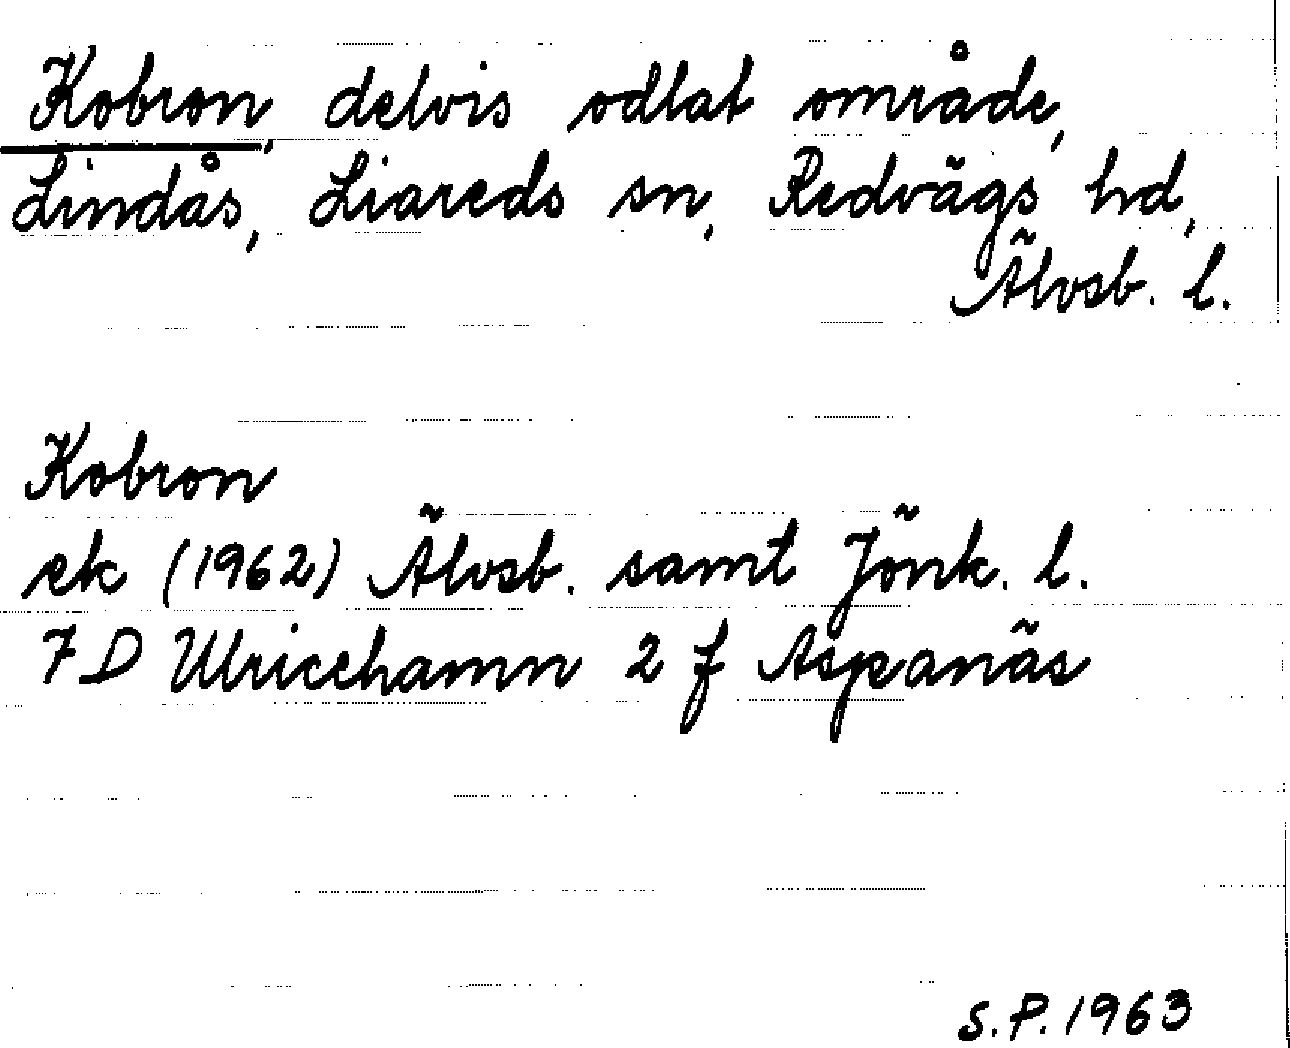 Kobron, delvis odlat område,
Lindås, Liareds sn, Redvägs hd,
Älvsb. l.
Kobron
ek (1962) Älvsb. samt Jönk. l.
7 D Ulricehamn 2 f Aspanäs
S.P. 1963